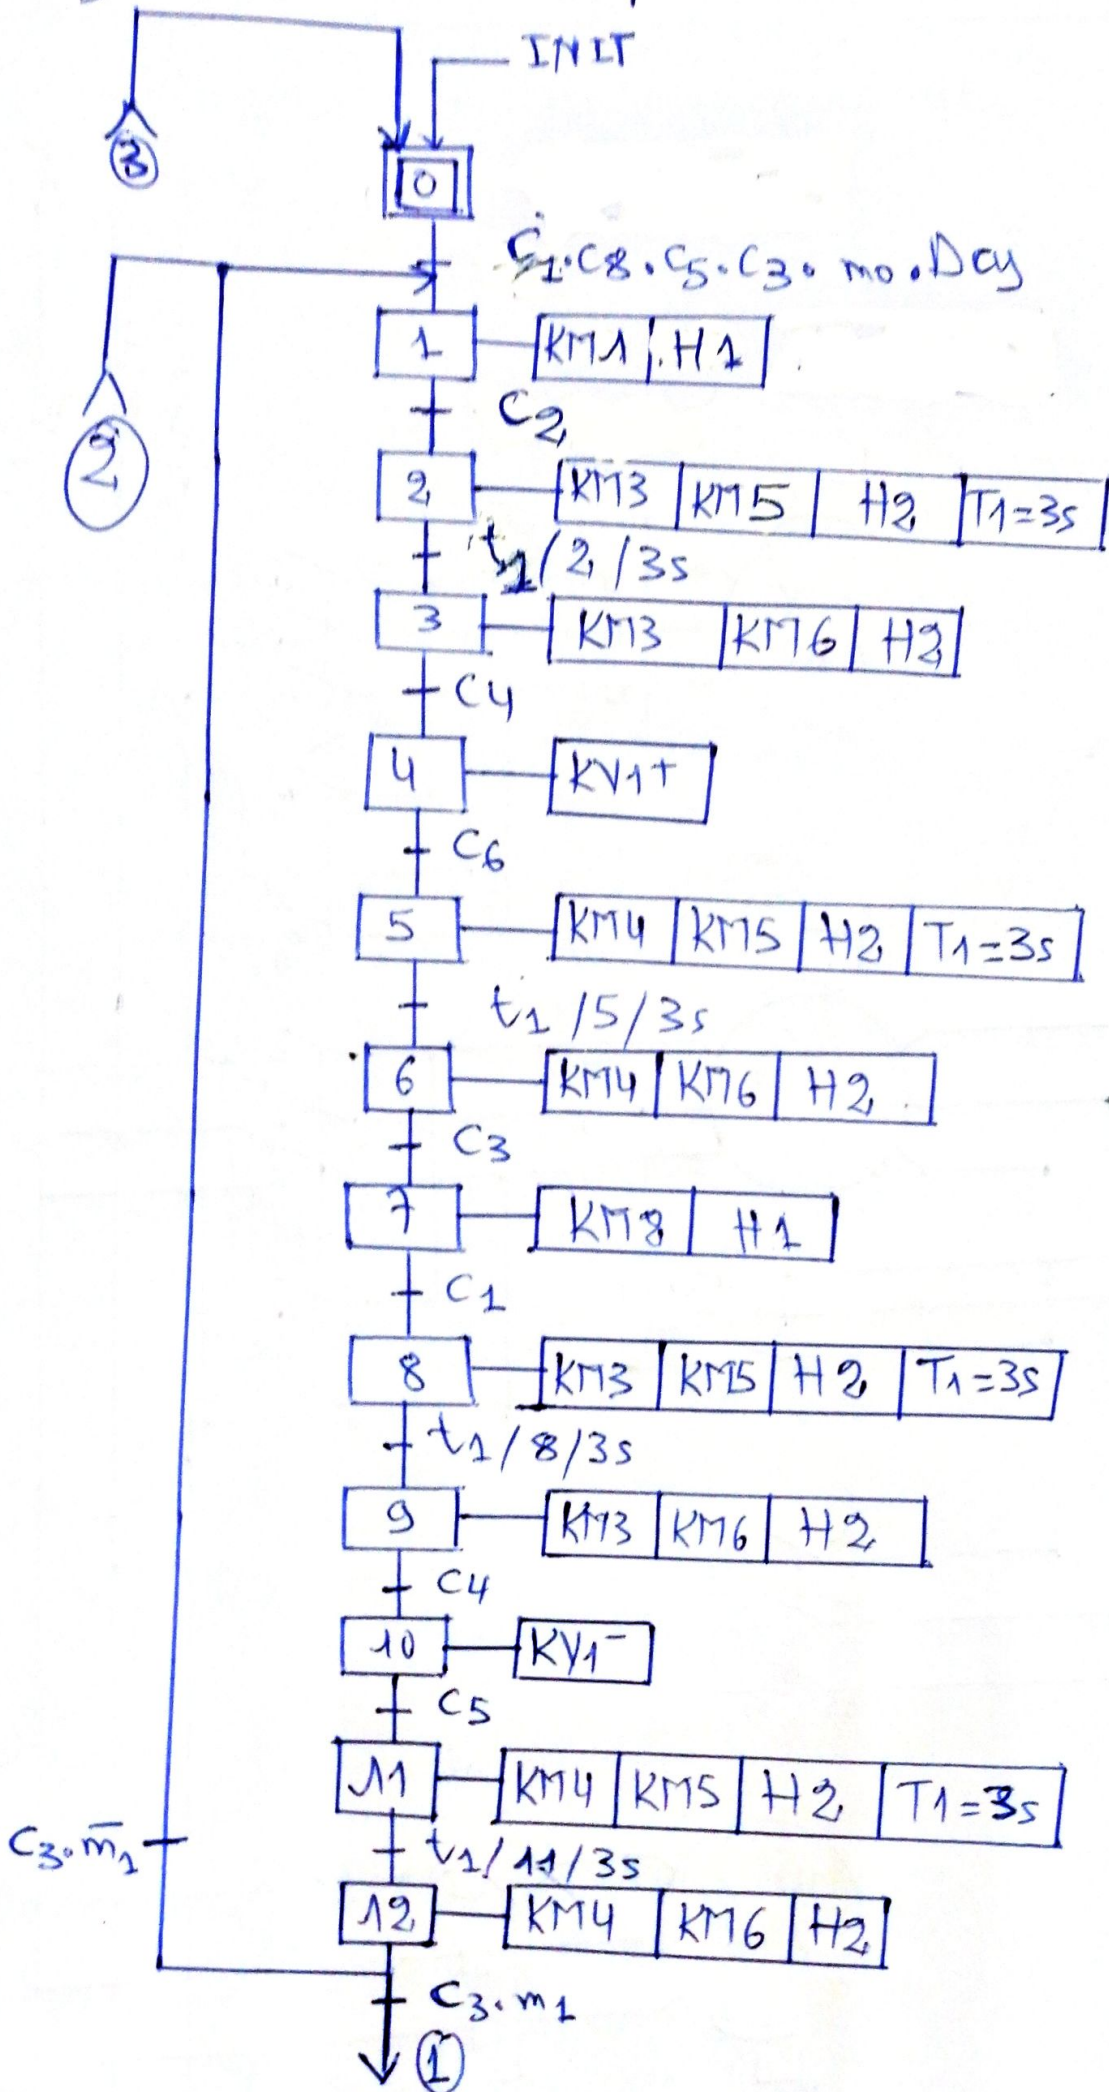 INIT
3
0
C1.C8.C5.C3.mo.Dcy
1 KM1 H1
C2
2
2 KM3 KM5 H2 T1=3s
t1/2/3s
3 KM3 KM6 H2
C4
4 KV1+
C6
5 KM4 KM5 H2 T1=3s
t1/5/3s
6 KM4 KM6 H2
C3
7 KM8 H1
C1
8 KM3 KM5 H2 T1=3s
t1/8/3s
9 KM3 KM6 H2
C4
10 KV1-
C5
11 KM4 KM5 H2 T1=3s
C3.m̅1
t1/11/3s
12 KM4 KM6 H2
C3.m1
1